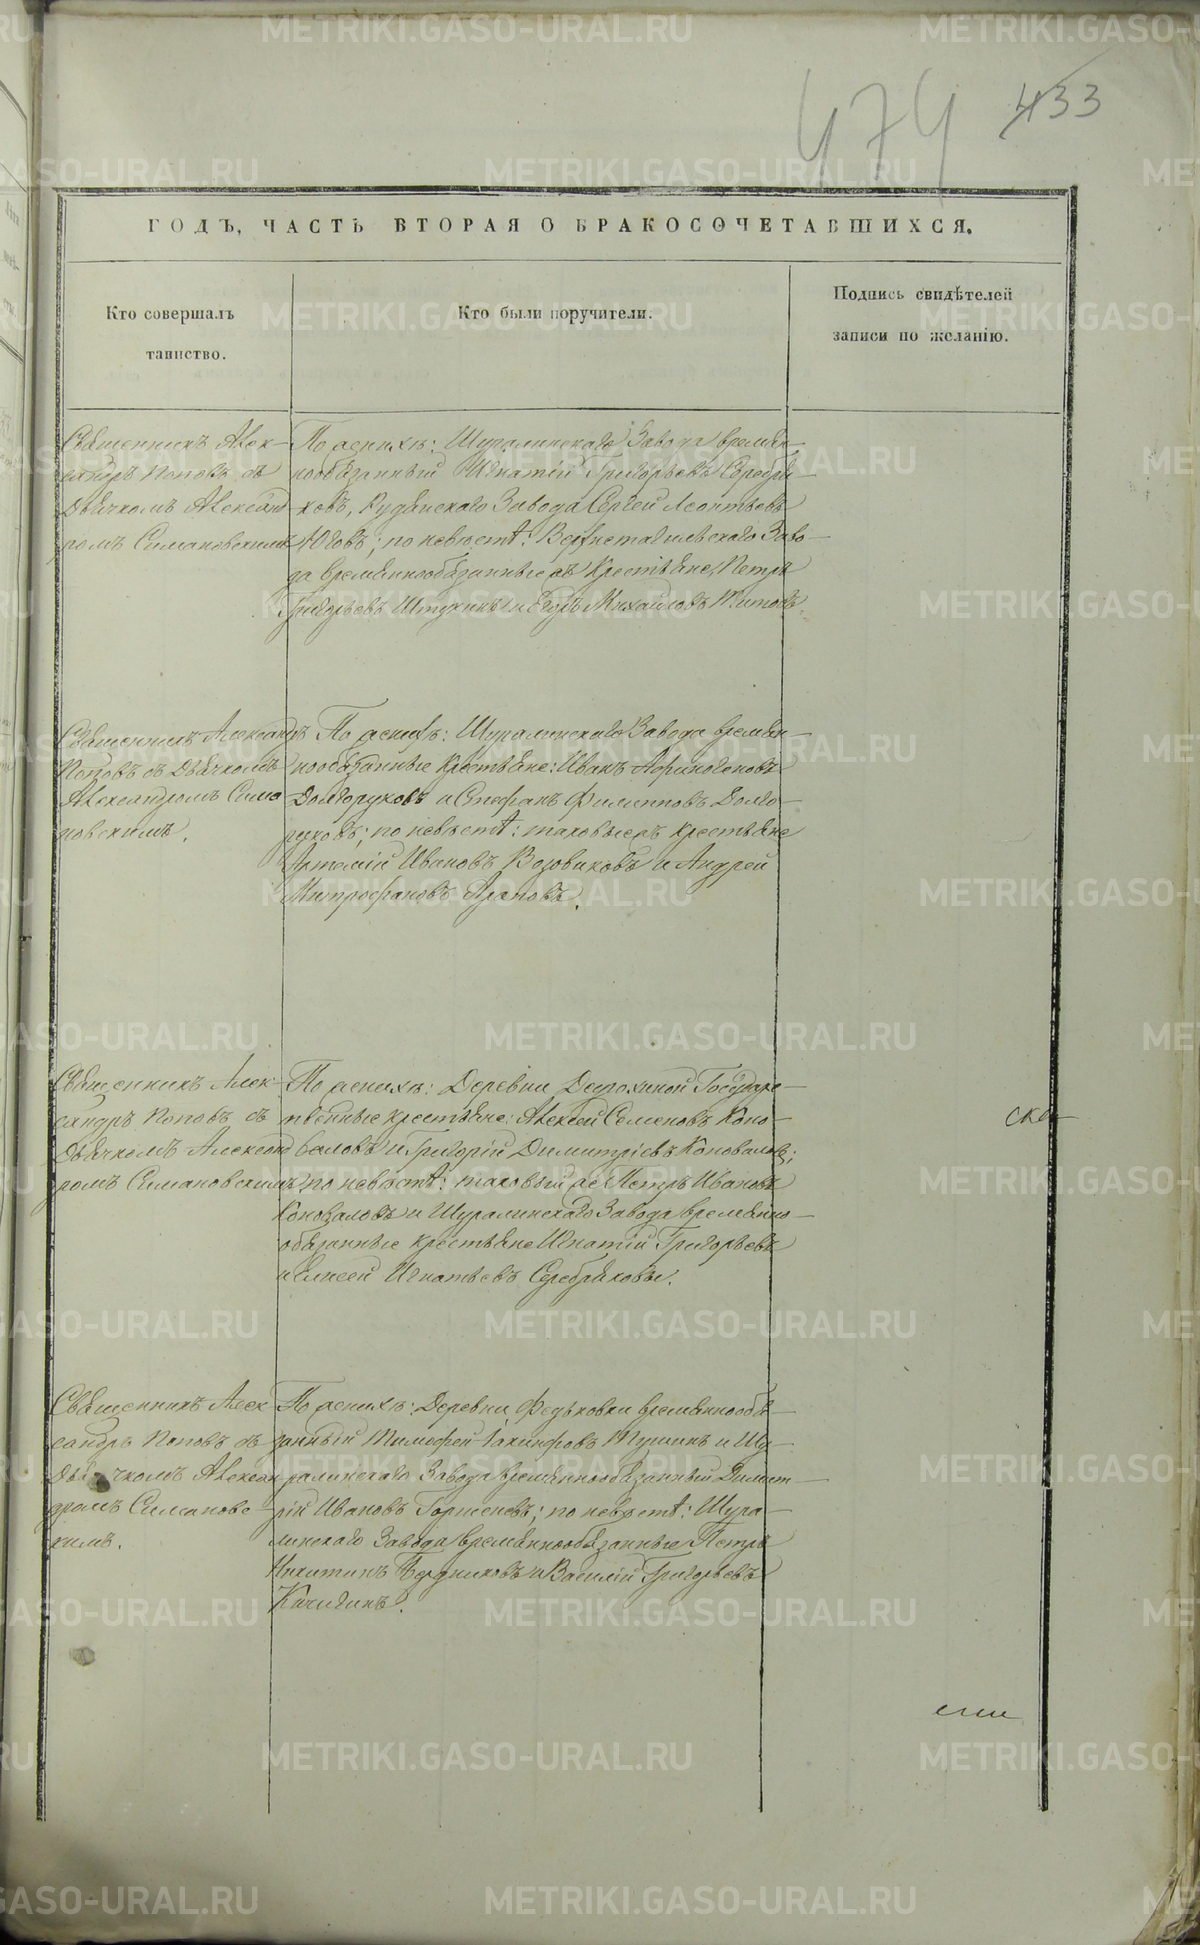 474 433
ГОДЪ, ЧАСТЬ ВТОРАЯ О БРАКОСОЧЕТАВШИХСЯ.
Кто совершалъ
таинство.
Кто были поручители.
Подпись свидѣтелей
записи по желанію.
Священникъ Алек-
сандръ Поповъ съ
Дьячкомъ Александ
ромъ Симановскимъ
По женихѣ: Шуралинскаго Завода времен-
нообязанный Игнатій Григорьевъ Серебря-
ковъ, Рудянскаго Завода Сергей Леонтьевъ
Юговъ; по невѣстѣ: Верхнетагильскаго Заво-
да временнообязанные Крестьяне, Петръ
Григорьевъ Штукинъ и Егоръ Михайловъ Титовъ.
Священникъ Александръ
Поповъ съ Дьячкомъ
Александромъ Сима
новскимъ.
По женихѣ: Шуралинскаго Завода времен-
нообязанные Крестьяне: Иванъ Афиногеновъ
Долгоруковъ и Стефанъ Филипповъ Долго-
руковъ; по невѣстѣ: таковые жъ крестьяне
Артемій Ивановъ Возовиковъ и Андрей
Митрофановъ
Священникъ Алек-
сандръ Поповъ съ
Дьячкомъ Александ
ромъ Симановскимъ
По женихѣ: Деревни Государс-
твенные крестьяне: Алексей Семеновъ Коно-
валовъ и Григорій Димитріевъ Коноваловъ;
по невѣстѣ: таковый же Петръ Ивановъ
Коноваловъ и Шуралинскаго Завода временно-
обязанные крестьяне Игнатій Григорьевъ
и Елисей Игнатьевъ Серебряковы.
Священникъ Алек
сандръ Поповъ съ
Дьячкомъ Алексан
дромъ Симановс-
кимъ.
По женихѣ: Деревни Федьковки временнообя-
занный Тимофей Іакинфовъ Тушинъ и Шу-
ралинскаго Завода временнообязанный Димит-
рій Ивановъ Горшеневъ; по невѣстѣ: Шура-
линскаго Завода временнообязанные Петръ
Никитинъ Бердниковъ и Василій Григорьевъ
Кичигинъ.